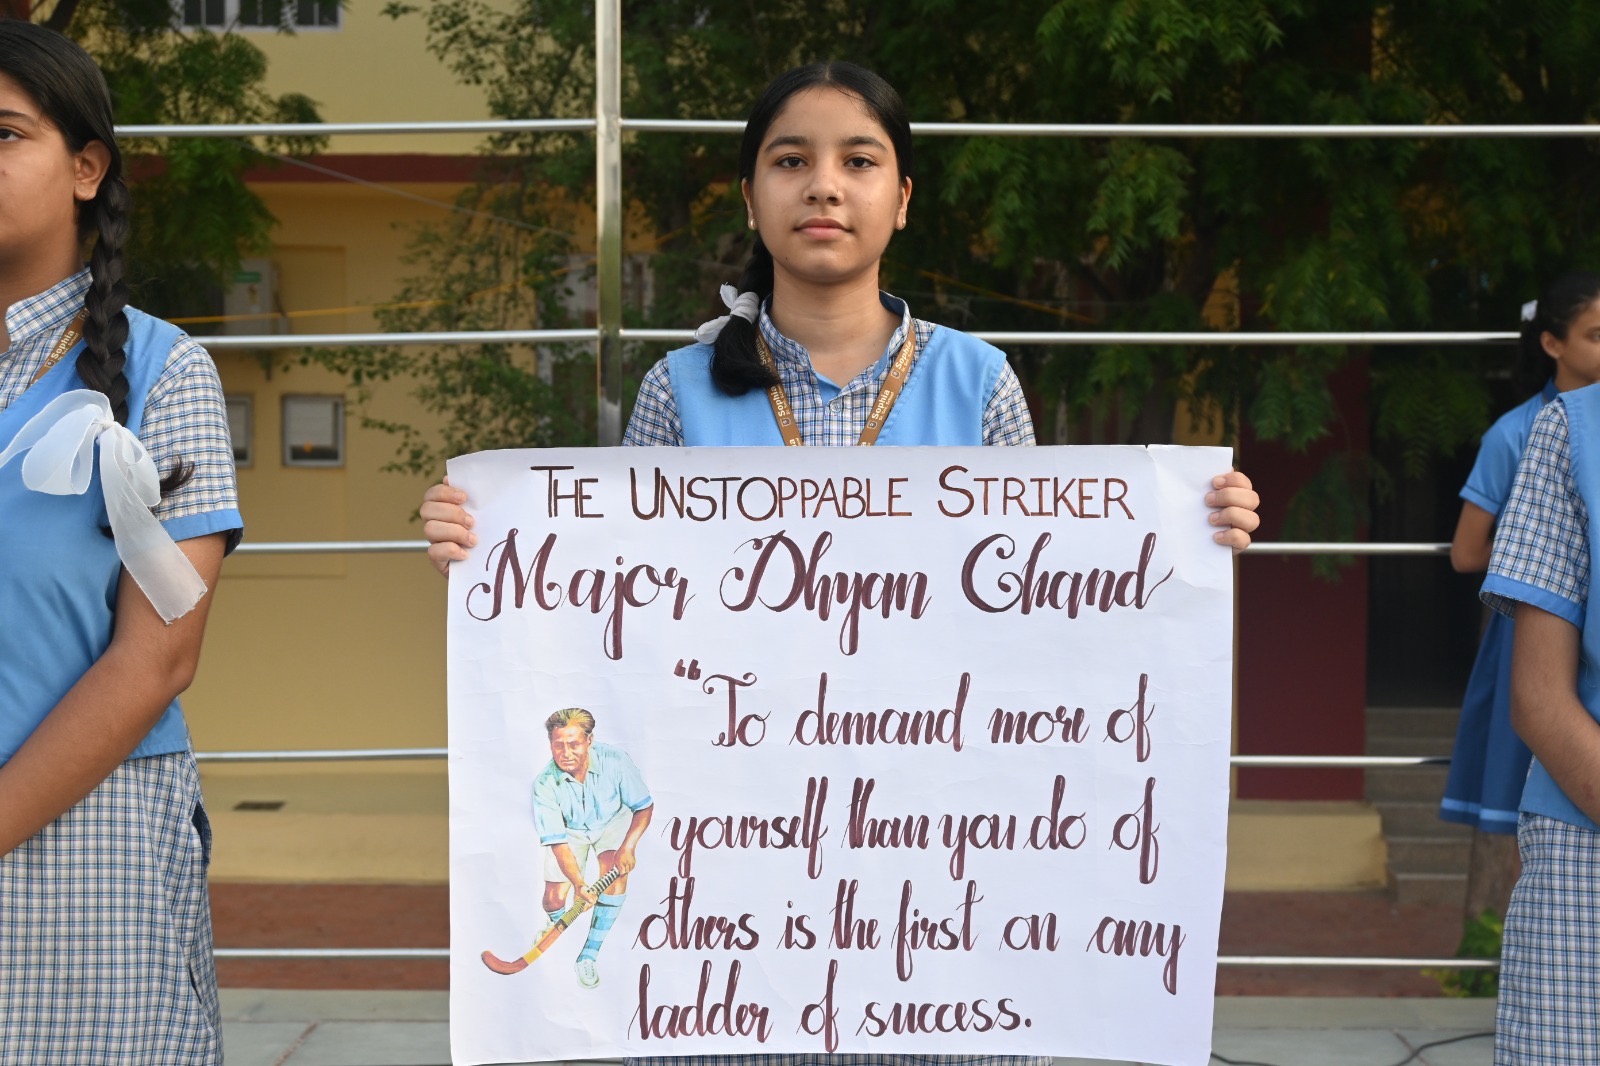 THE UNSTOPPABLE STRIKER
Major Dhyan Chand
“To demand more of
yourself than you do of
others is the first on any
ladder of success.
Sophia
Sophia
Sophia